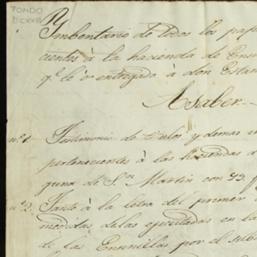 FONDO
Ymbentario de todos los pap
cientes à la hacienda de
qe. le è entregado à don Estan
A saber.
no. 1. Testimonio de titulos y demas
pertenecientes à las Haciendas d
guna de Sn. Martin con 43 f
no. 2. Junto à la letra del primer
medidas de las ejecutadas en la
de las por el sub